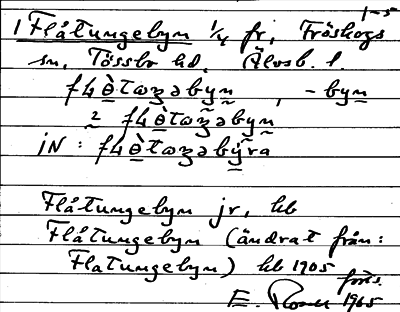 1-5
1 Flåtungebyn 1/4 fr, Fröskogs
sn, Tössbo hd. Älvsb. l.
flɵ̀tɷꜫəbyn, -byn
2 flɵ̀tɷꜫəbyn
iN: flɵ̀tɷꜫəbýra
Flåtungebyn jr, kb
Flåtungebyn (ändrat från:
Flatungebyn) kb 1905
forts.
E. 1965